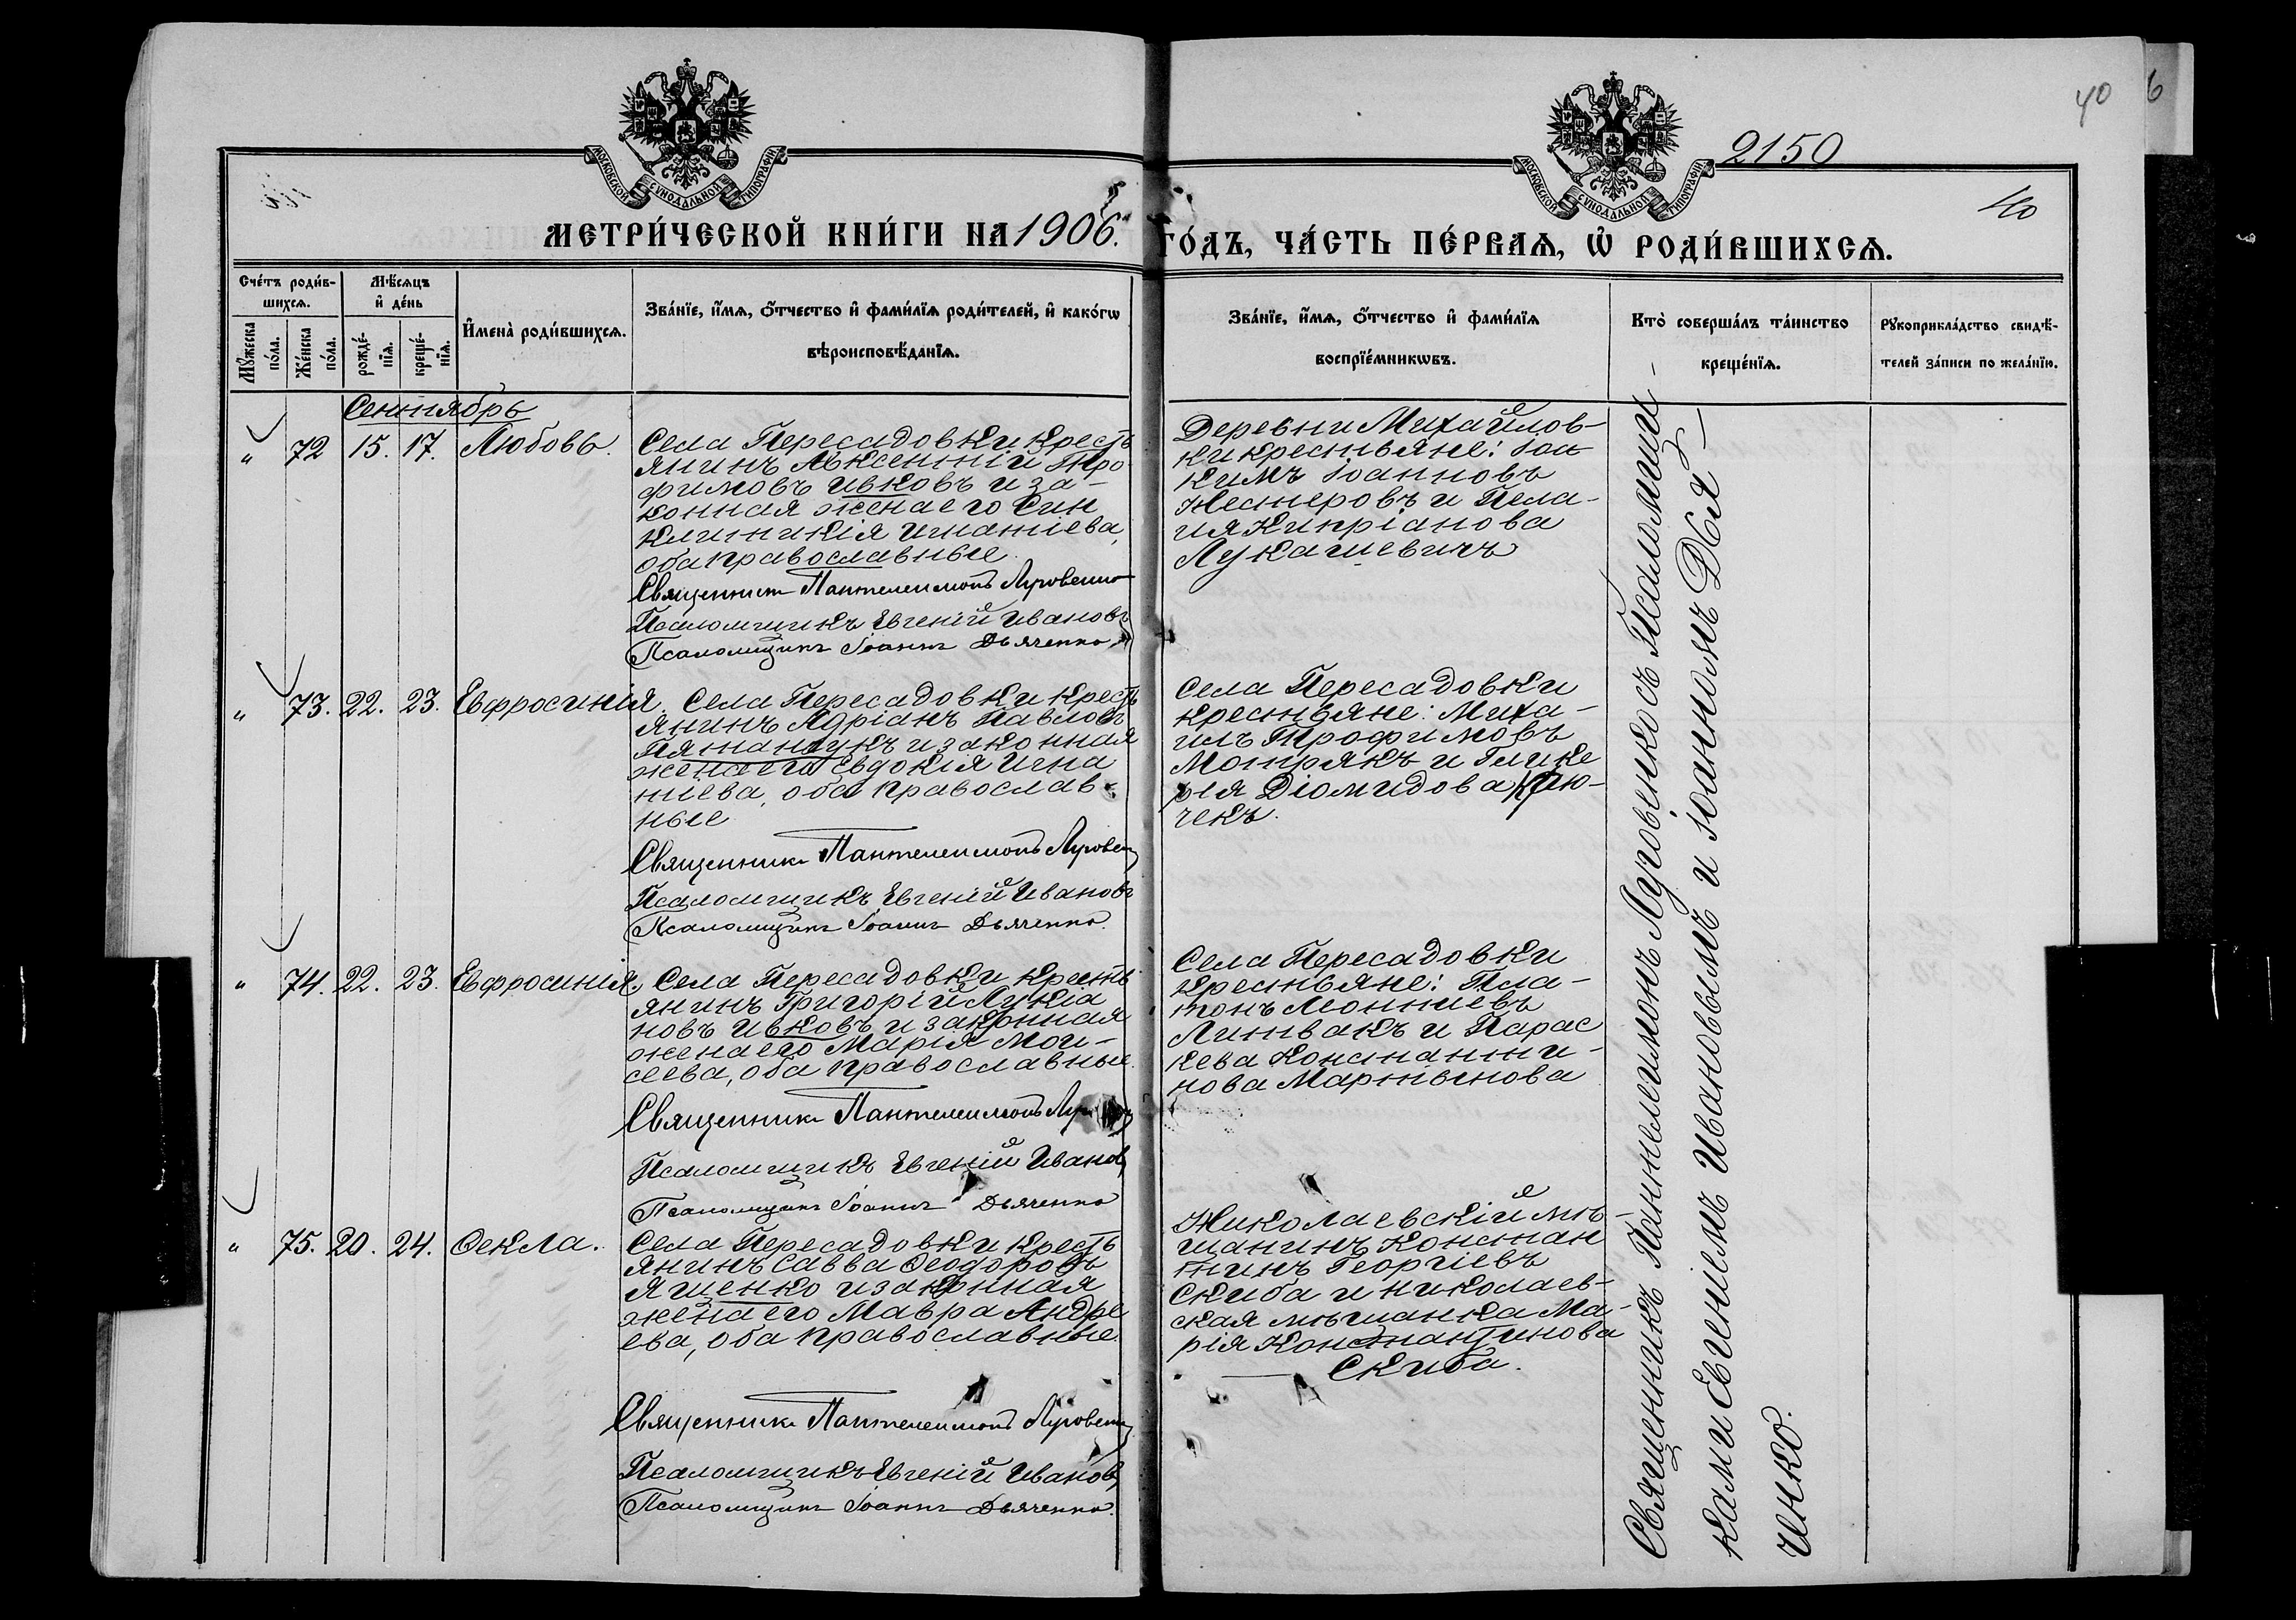 40 6
2150
40
МОСКОВСКОЙ СѴНОДАЛЬНОЙ ТИПОГРАФІИ
МОСКОВСКОЙ СѴНОДАЛЬНОЙ ТИПОГРАФІИ
МЕТРИ́ЧЕСКОЙ КНИ́ГИ НА 1906.
ГО́ДЪ, ЧА́СТЬ ПЕ́РВАѦ, Ѽ РОДИ́ВШИХСѦ.
Сче́тъ роди́в-
шихсѧ.
Мꙋ́жеска
по́ла.
Же́нска
по́ла.
Мѣ́сѧцъ
и҆ де́нь
рожде́-
нїѧ.
креще́-
нїѧ.
И҆мена̀ роди́вшихсѧ.
Зва́нїе, и҆́мѧ, ѻ҆́тчество и҆ фами́лїѧ роди́телей, и҆ како́гѡ
вѣроисповѣ́данїѧ.
Зва́нїе, и҆́мѧ, ѻ҆́тчество и҆ фами́лїѧ
воспрїе́мникѡвъ.
Кто̀ соверша́лъ та́инство
креще́нїѧ.
Рꙋкоприкла́дство свидѣ́-
телей за́писи по жела́нїю.
Сентябрь
" 72 15. 17. Любовь.
Села Пересадовки кресть
янинъ Авксентій Тро
фимовъ Ивковъ и за-
конная жена его Син
клитикія Игнатіева,
оба православные.
Священник Пантелеимонъ Луговенко
Псаломщикъ Евгеній Ивановъ
Псаломщикъ Іоаннъ Дьяченко
Деревни Михайлов-
ки крестьяне: Іоа
кимъ Іоанновъ
Нестеровъ и Пела-
гія Кипріанова
Лукашевичъ
" 73. 22. 23. Евфросинія.
Села Пересадовки кресть
янинъ Адріанъ Павловъ
Пятанчукъ и законная
жена его Евдокія Игна
тіева, оба православ-
ные
Священникъ Пантелеимонъ Луговен
Псаломщикъ Евгеній Ивановъ
Псаломщикъ Іоаннъ Дьяченко.
Села Пересадовки
крестьяне: Миха-
илъ Трофимовъ
Мотрякъ и Глике
рія Діомидова Крю-
чекъ.
" 74. 22. 23. Евфросинія.
Села Пересадовки кресть
янинъ Григорій Лукіа
новъ Ивковъ и законная
жена его Марія Мои-
сеева, оба православные.
Священникъ Пантелеимонъ
Псаломщикъ Евгеній Иванов
Псаломщикъ Іоаннъ Дьяченко
Села Пересадовки
крестьяне: Пла-
тонъ Леонтіевъ
Литвакъ и Парас
кева Константи-
нова Мартынова
" 75. 20. 24. Ѳекла.
Села Пересадовки кресть
янинъ Савва Ѳеодоровъ
Ященко и законная
жена его Мавра Андре
ева, оба православные.
Священникъ Пантелеимонъ Луговен
Псаломщикъ Евгеній Иванов
Псаломщикъ Іоаннъ Дьяченко.
Николаевскій мѣ-
щанинъ Констан
тинъ Георгіевъ
Скиба и николаев-
ская мѣщанка Ма-
рія Константинова
Скиба.
Священникъ Пантелеимонъ Луговенко съ Псаломщи-
ками Евгеніемъ Ивановымъ и Іоанномъ Дья-
ченко.